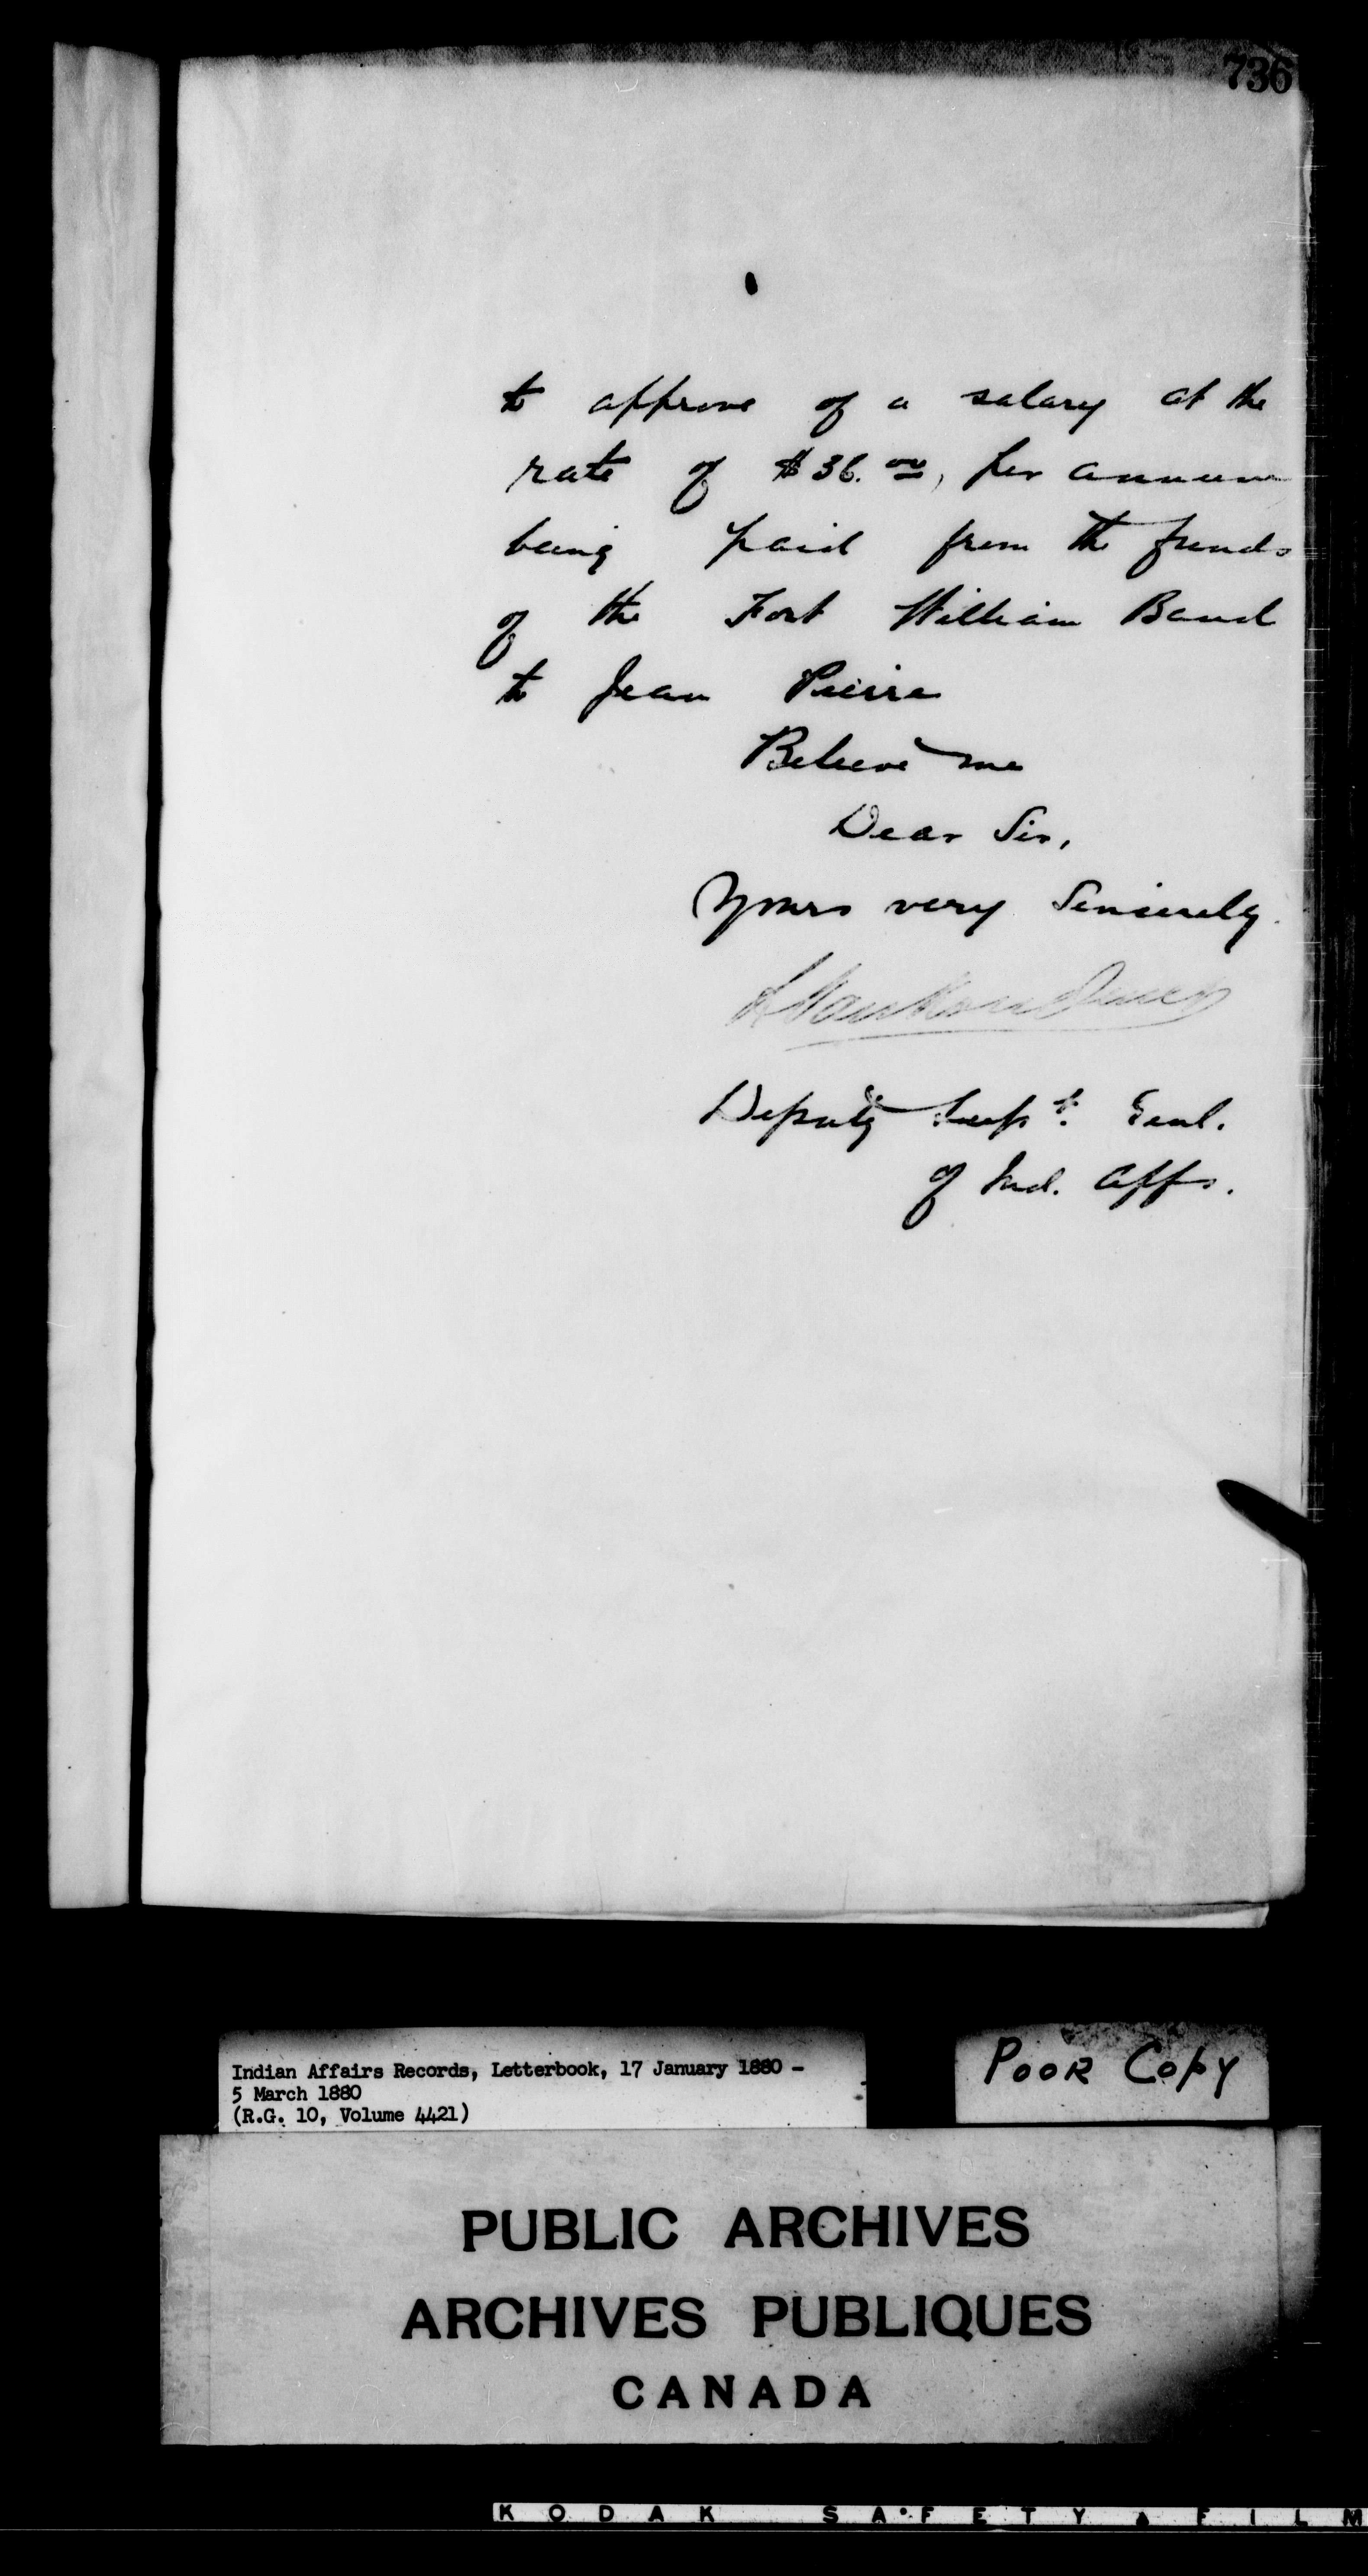 736
to approve of a salary at the
rate of $36.00, per annum
being paid from the funds
of the Fort William Band
to Jean Pierre
Believe me
Dear Sir,
Yours very Sincerely.
L VanKoughnet
Deputy Supt. Genl.
of Ind. Affs.
Indian Affairs Records, Letterbook, 17 January 1880 -
5 March 1880
(R.G. 10, Volume 4421)
POOR COPY
PUBLIC ARCHIVES
ARCHIVES PUBLIQUES
CANADA
KODAK SAFETY FILM